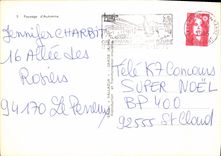 3 Paysage d'Automne
Jennifer CHARBIT
16 Allée des
Rosiers
94170 Le Perreux
Télé K7 Concours
SUPER NOËL
BP 400
92555 St Cloud